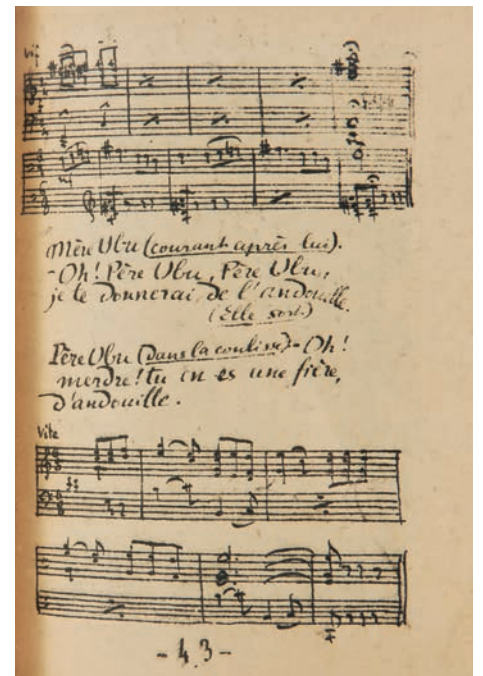 Vif
Mère Ubu (courant après lui).
- Oh! Père Ubu, Père Ubu,
je te donnerai de l'andouille.
(Elle sort)
Père Ubu (dans la coulisse) - Oh!
merdre! tu en es une fière,
d'andouille.
Vite
- 43 -